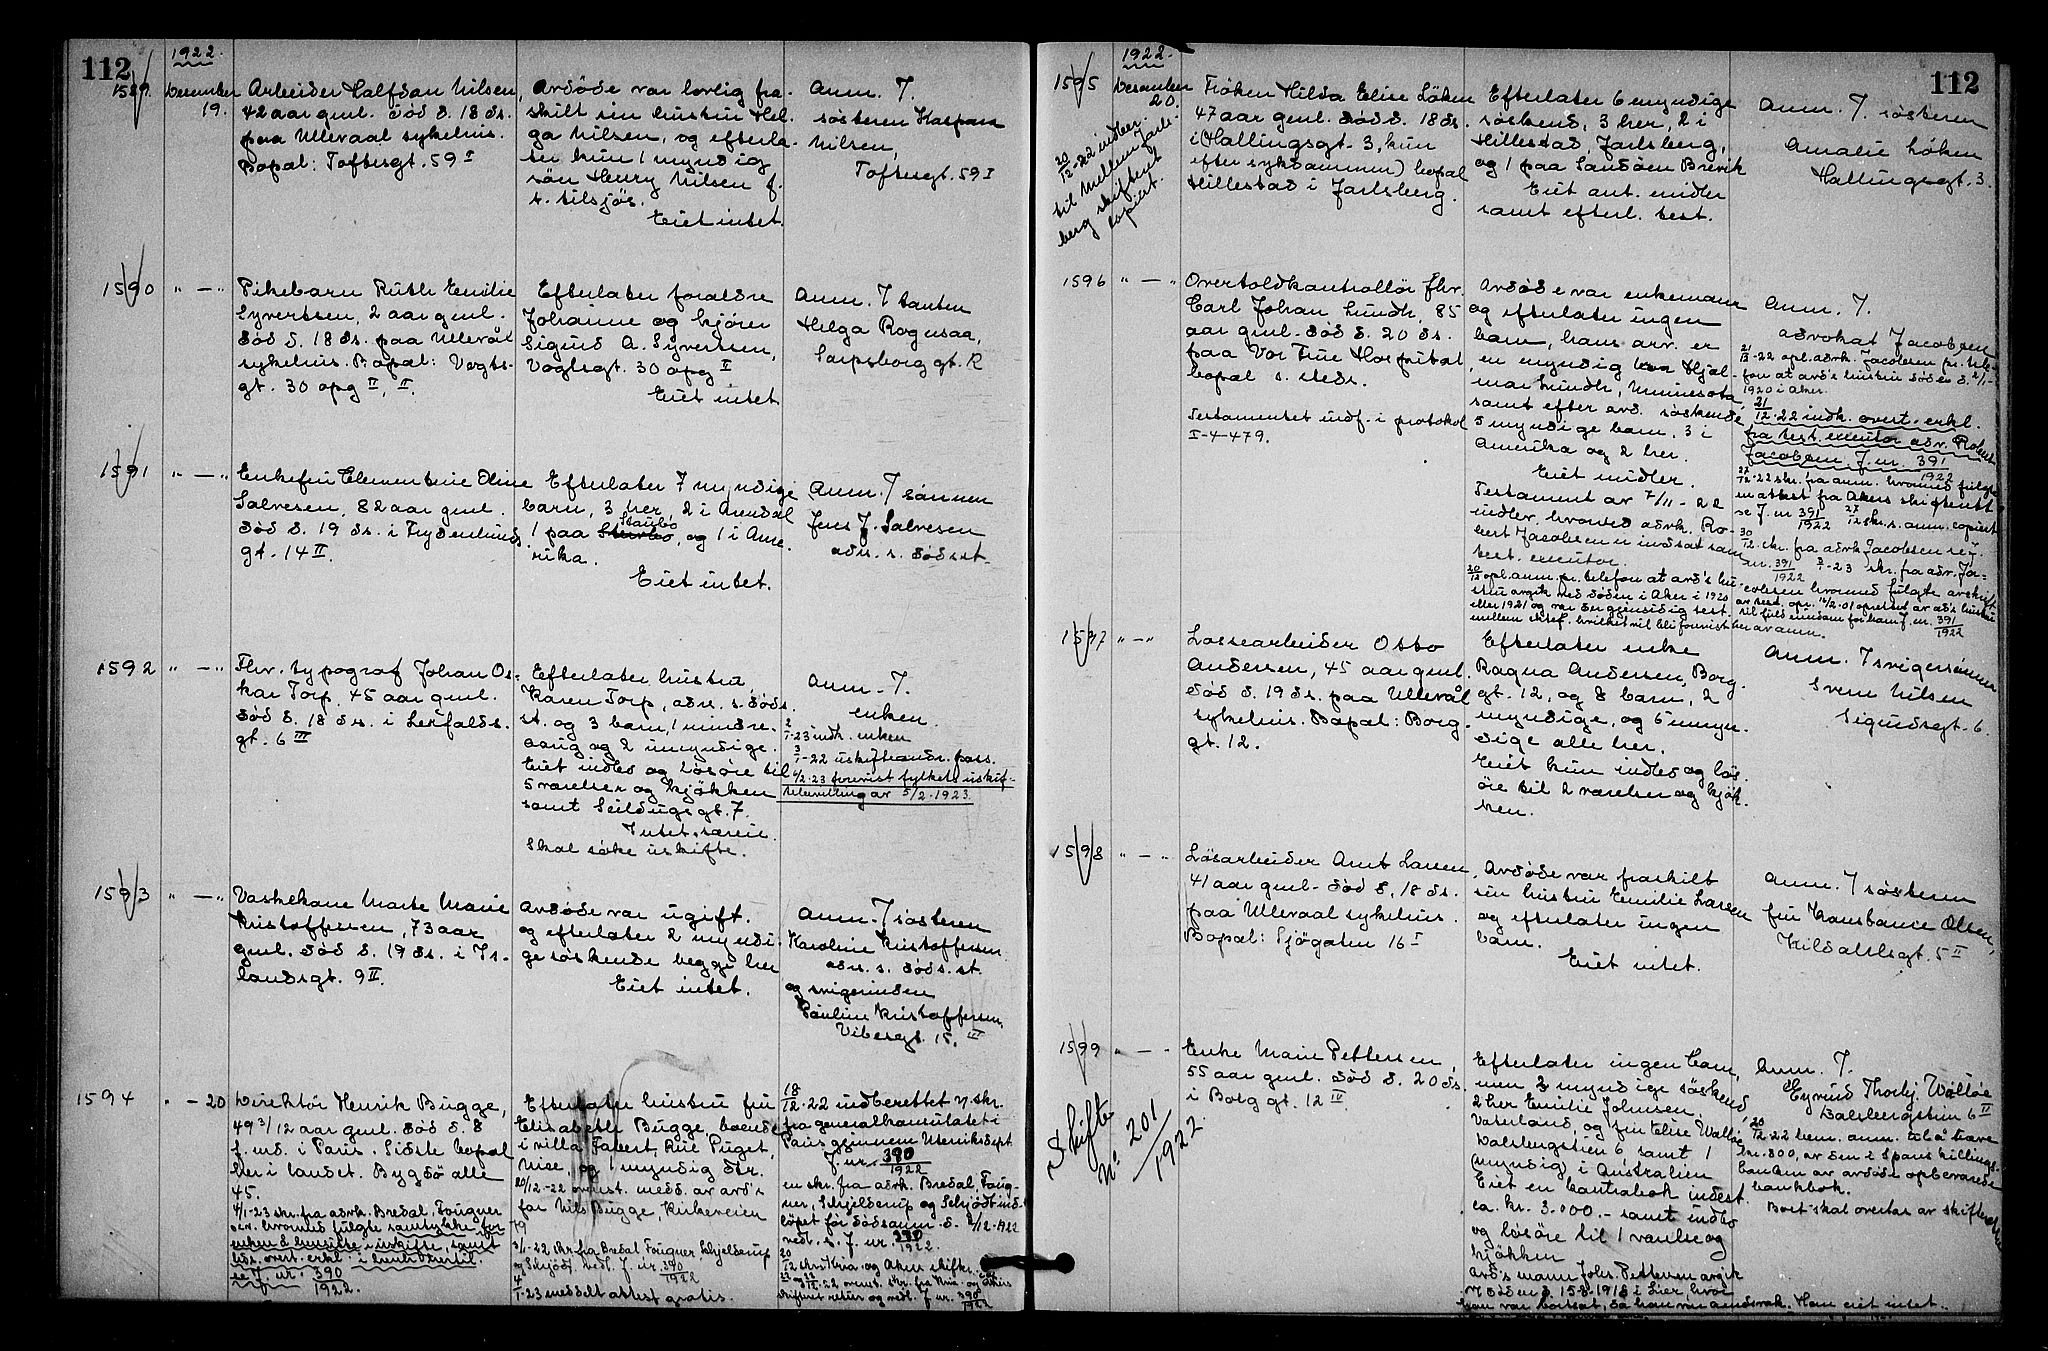 112
1922.
1589.
December
19.
Arbeider Halfdan Nilsen,
42 aar gml. død d. 18 ds.
paa Ullevaal sykehus.
Bopæl: Toftesgt. 59 I
Avdøde var lovlig fra-
skilt sin hustru Hel-
ga Nilsen, og efterla-
ter kun 1 myndig
søn Henry Nilsen f.
t. tilsjøs.
Eiet intet.
Anm. J.
søsteren
Nilsen,
Toftesgt. 59 I
1590
" — "
Pikebarn Ruth Emilie
Syvertsen, 2 aar gml.
død d. 18 ds. paa Ullevål
sykehus. Bopæl: Vogts-
gt. 30 opg II, II.
Efterlater forældre
Johanne og kjører
Sigurd A. Syvertsen,
Vogtsgt. 30 opg II
Eiet intet
Anm. J tanten
Helga Rognsaa,
Sarpsborg gt. 12
1591
" — "
Enkefru Clementine Oline
Salvesen, 82 aar gml.
død d. 19 ds. i Frydenlunds
gt. 14 II.
Efterlater 7 myndige
barn, 3 her, 2 i Arendal
1 paa Staubø, og 1 i Ame-
rika.
Eiet intet.
Anm. J sønnen
Jens J. Salvesen
adr. s. dødsst.
1592
" — "
Fhv. typograf Johan Os-
kar Torp, 45 aar gml.
død d. 18 ds. i Seilfalds.
gt. 6 III
Efterlater hustru
Karen Torp, adr. s. døds-
st. og 3 barn, 1 mindre-
aarig og 2 umyndige.
Eiet indbo og løsøre til
5 værelser og kjøkken
samt Seildugsgt. 7.
Intet særeie.
Skal søke uskifte.
Anm. J.
enken.
2/1-23 indk. enken
3/1-22 uskifteandr. pass.
6/2-23 forevist fylkets uskif-
tebevilling av 5/2-1923.
1593
" — "
Vaskekone Marte Marie
Kristoffersen, 73 aar
gml. død d. 19 ds. i Is-
landsgt. 9 II.
Avdøde var ugift.
og efterlater 2 myndi-
ge søskende begge her
Eiet intet.
Anm. J søsteren
Karoline Kristoffersen
adr. s. døds. st.
og svigerinden
Pauline Kristoffersen,
Vibesgt. 15. III
1594
" — 20
Direktør Henrik Bugge,
49 3/12 aar gml. død d. 8
f. md. i Paris. Sidste bopæl
her i landet. Bygdø alle
45.
4/1-23 skr. fra advk. Bredal, Fougner
o.sv. hvormed fulgte samtykke for
enken å hensitte i uskifte, samt
uds. overt. erkl.
se J. nr. 390/1922.
Efterlater hustru fru
Elisabeth Bugge, boende
i villa Fabert, Rue Puget,
Nice, og 1 myndig dtr.
20/12-22 overt. medd. av avd's
far Nils Bugge, Kirkeveien
79
3/1-22 skr. fra Bredal Fougner Schjelderup
og Schjødt. vedl. J. nr. 390/1922
4/1-23 meddelt attest gratis.
18/12-22 indberettet v. skr.
fra generalkonsulatet i
Paris gjennem Utenriksdept
J. nr. 390/1922
en skr. fra advk. Bredal, Foug-
ner, Schjelderup og Schjødt ind-
løpet før dødsanm. d. 8/12-1922
vedl. s. J. nr. 390/1922.
20/12 skr. Kria. og Aker skifter.
22/12-22 overt. skr. fra Kria. og Akers
skifteret retur og vedl. J nr. 390/1922
112
1922.
1595
Desember
20.
20/12-22 indber.
til mellem Jarls-
berg skifteret
kopiert.
Frøken Hilda Elise Løken
47 aar gml. død d. 18 ds.
i (Hallingsgt. 3, kun
efter sykdommen) bopæl
Hillestad i Jarlsberg.
Efterlater 6 myndige
søskend, 3 her, 2 i
Hillestad, Jarlsberg,
og 1 paa Sandøen Brevik
Eiet ant. midler
samt efterl. test.
Anm. J. søsteren
Amalie Løken
Hallingsgt. 3.
1596
" — "
Overtoldkontrollør fhv.
Carl Johan Lundh, 85
aar gml. død d. 20 ds.
paa Vor Frue Hospital
bopæl s. steds.
Testamentet indf. i protokol
I-4-479.
Avdøde var enkemann
og efterlater ingen
barn, hans arv. er
en myndig bror Hjal-
mar Lundh, Minnesota,
samt efter avd. søskende
5 myndige barn, 3 i
Amerika og 2 her.
Eiet midler.
Testament av 7/11-22
indlev. hvorved advk. Ro-
bert Jacobsen er indsat som
test. executor.
20/12 opl. anm. pr. telefon at avd's hu-
stru avgik ved døden i Aker i 1920
eller 1921 og var der gjensidig test.
mellem ektef. hvilket vil bli forevist her av anm.
Anm. J.
advokat Jacobsen
21/12-22 opl. advk. Jacobsen pr. tele-
fon at avd's hustru døde d. 2/1-
1920 i Aker.
21/12-22 indk. overt. erkl.
fra test. executor adv. Robert
Jacobsen J. nr. 391/1922
27/12-22 skr. fra anm. hvormed fulgte
en attest fra Akers skifterett
se J. nr 391/1922 27/12 skr. s. anm. copiert
30/12 skr. fra advk Jacobsen se J.
nr. 391/1922 3/1-23 skr. fra adv. Ja-
cobsen hvormed fulgte avskrift
av test. opr. 14/2-01 oprettet av avd's hustru
J. nr. 391/1922
1597
" — "
Lossearbeider Otto
Andersen, 45 aar gml.
død d. 19 ds. paa Ullevål
sykehus. Bopæl: Borg-
gt. 12.
Efterlater enke
Ragna Andersen, Borg-
gt. 12, og 8 barn, 2
myndige, og 6 umyn-
dige alle her.
Eiet kun indbo og løs-
øre til 2 værelser og kjøk-
ken.
Anm. J svigersønnen
Svein Nilsen
Sigurdsgt. 6.
1598
" — "
Løsarbeider Arnt Larsen,
41 aar gml. død d. 18 ds.
paa Ullevaal sykehus.
Bopæl: Sjøgaten 16 I
Avdøde var fraskilt
sin hustru Emilie Larsen
og efterlater ingen
barn.
Eiet intet.
Anm. J søsteren
fru Konstance Olsen,
Kildahlsgt. 5 II
1599
" — "
Skifte
No 201/1922
Enke Marie Pettersen,
55 aar gml. død d. 20 ds.
i Borg gt. 12 IV.
Efterlater ingen barn,
men 3 myndige søskend,
2 her Emilie Johnsen,
Vaterland, og fru Elise Walløe
Dalsbergstien 6, samt 1
(myndig) i Australien.
Eiet en bankbok indest.
ca. kr. 3.000.- samt indbo
og løsøre til 1 værelse og
kjøkken
Avd's mann Johs. Pettersen avgik
v. døden d. 15-8-1918 i Lier, hvor
han var bortsat, da han var aandssvak. Han eiet intet.
Anm. J.
Eyvind Thorbj. Walløe
Dalsbergstien 6 II
20/12-22 bem. anm. tol å hæve
kr. 800, av den i Spareskillings-
banken av avdøde opbevarede
bankbok.
Boet skal overtas av skifteretten